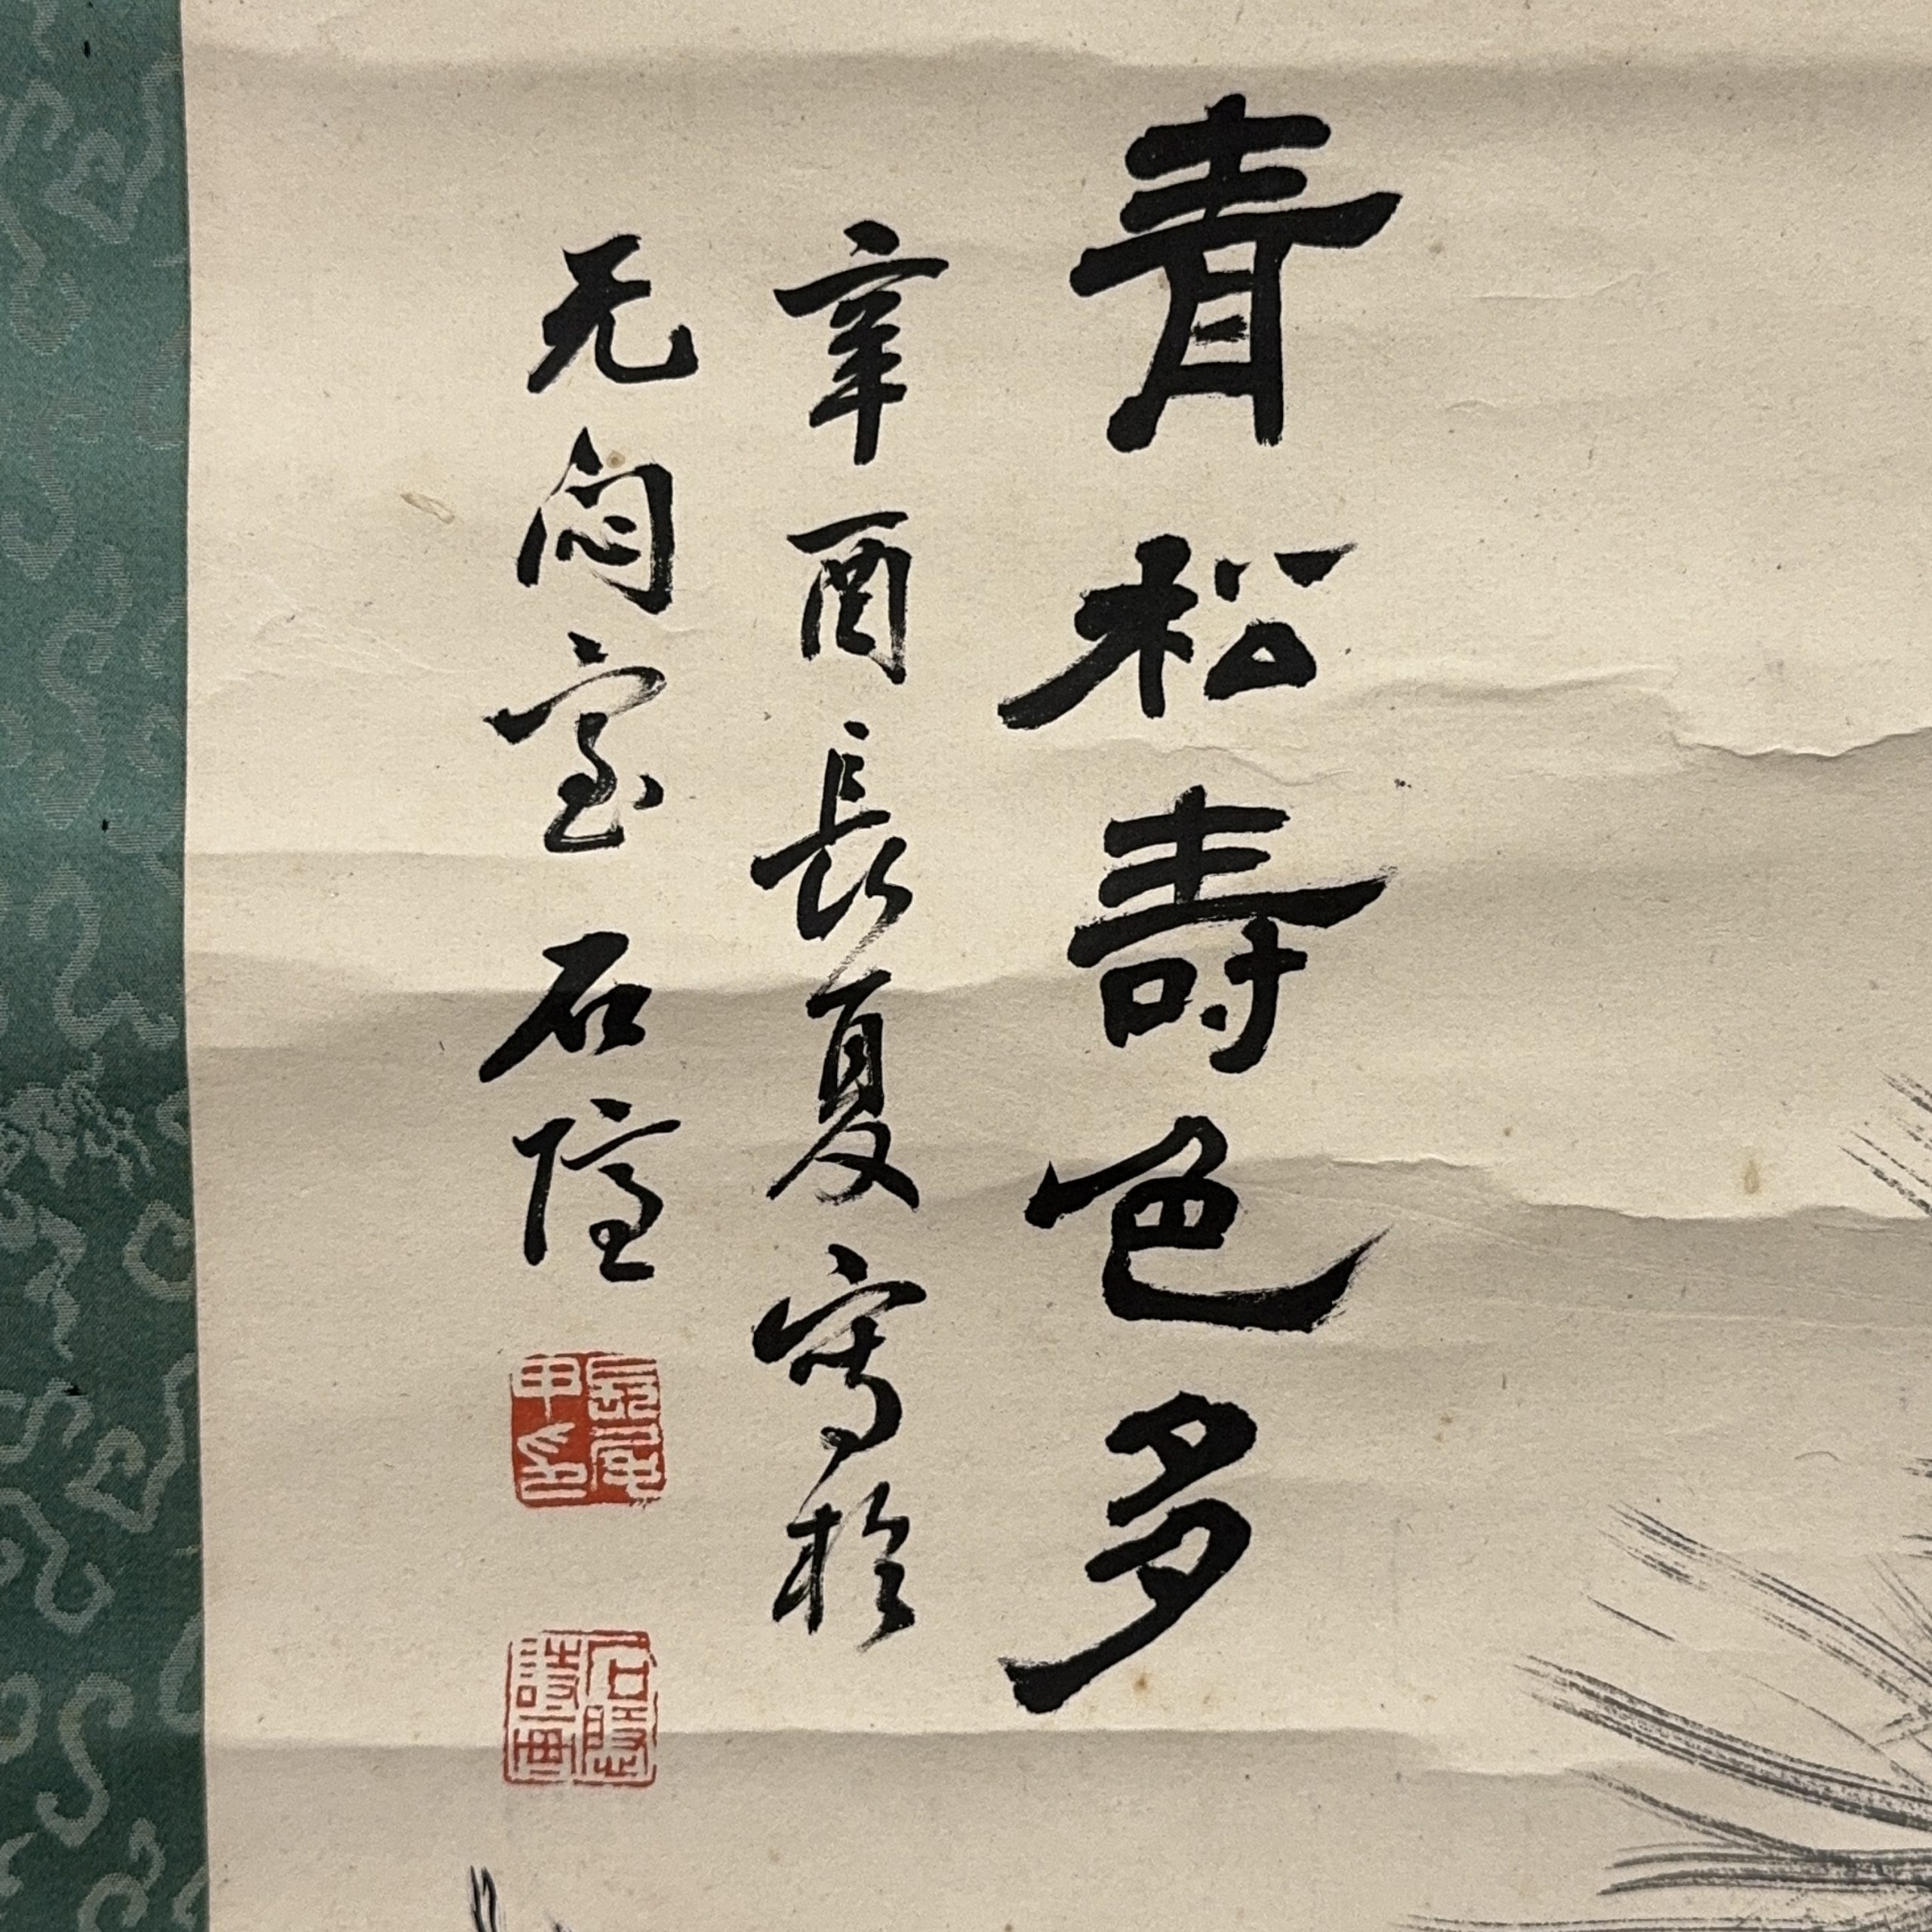 青松寿色多
辛酉長夏写於
无闷室 石隱
石隱
詩画